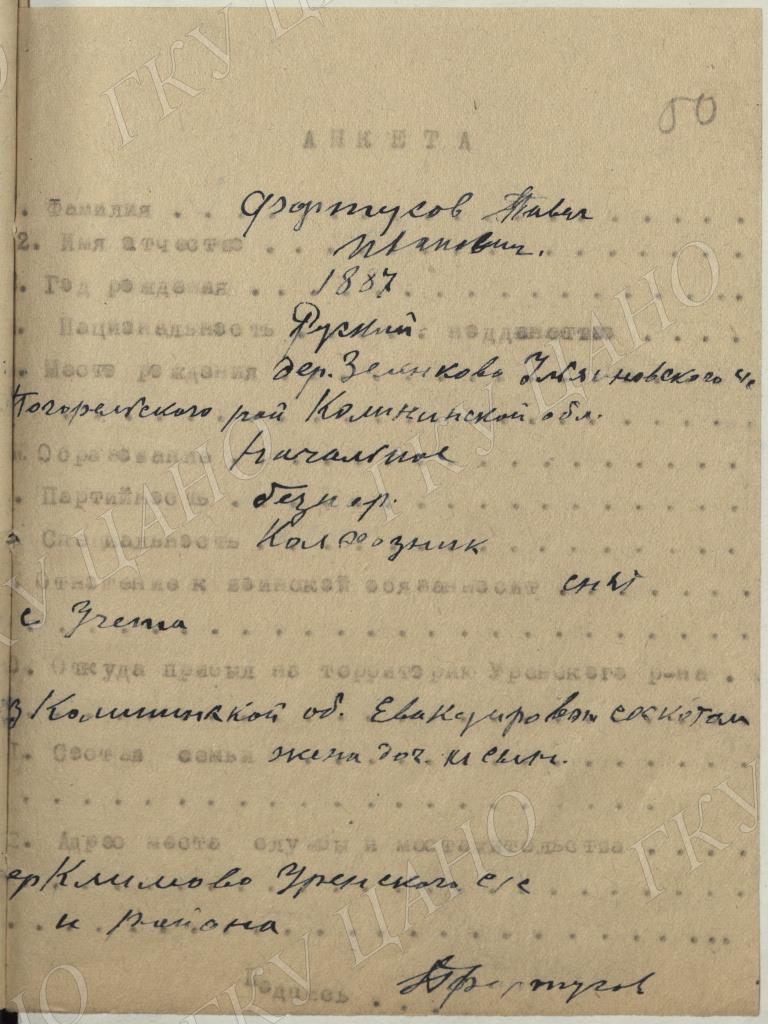 50
АНКЕТА
. Фамилия . . Фартусов Павел . . . . .
2. Имя атчество . . . Иванович. . . . . .
. Год рождения . . 1887 . . . . . . .
. Национальность Руский . . подданство . . . .
. Место рождения дер. Зеленково Ульяновского с/с
Погорельского рай Калининской обл.
. Образование Начальное . . . . . .
. Партийность . безпар. . . . . . .
Специальность Колхозник . . . . . .
. Отношение к воинской обязанност снят . . . .
с Учета . . . . . . . . .
. Откуда прибыл на территорию Уренского р-на .
з Калининской об. Евакуирован со скотам
. Состав семьи жена доч. и сын. . . . .
. . . . . . . . . . . .
2. Адрес места службы и местожительства . . . .
ер Климово Уренского с/с
. . и района . . . . . . . . .
Подпись . . Фартусов